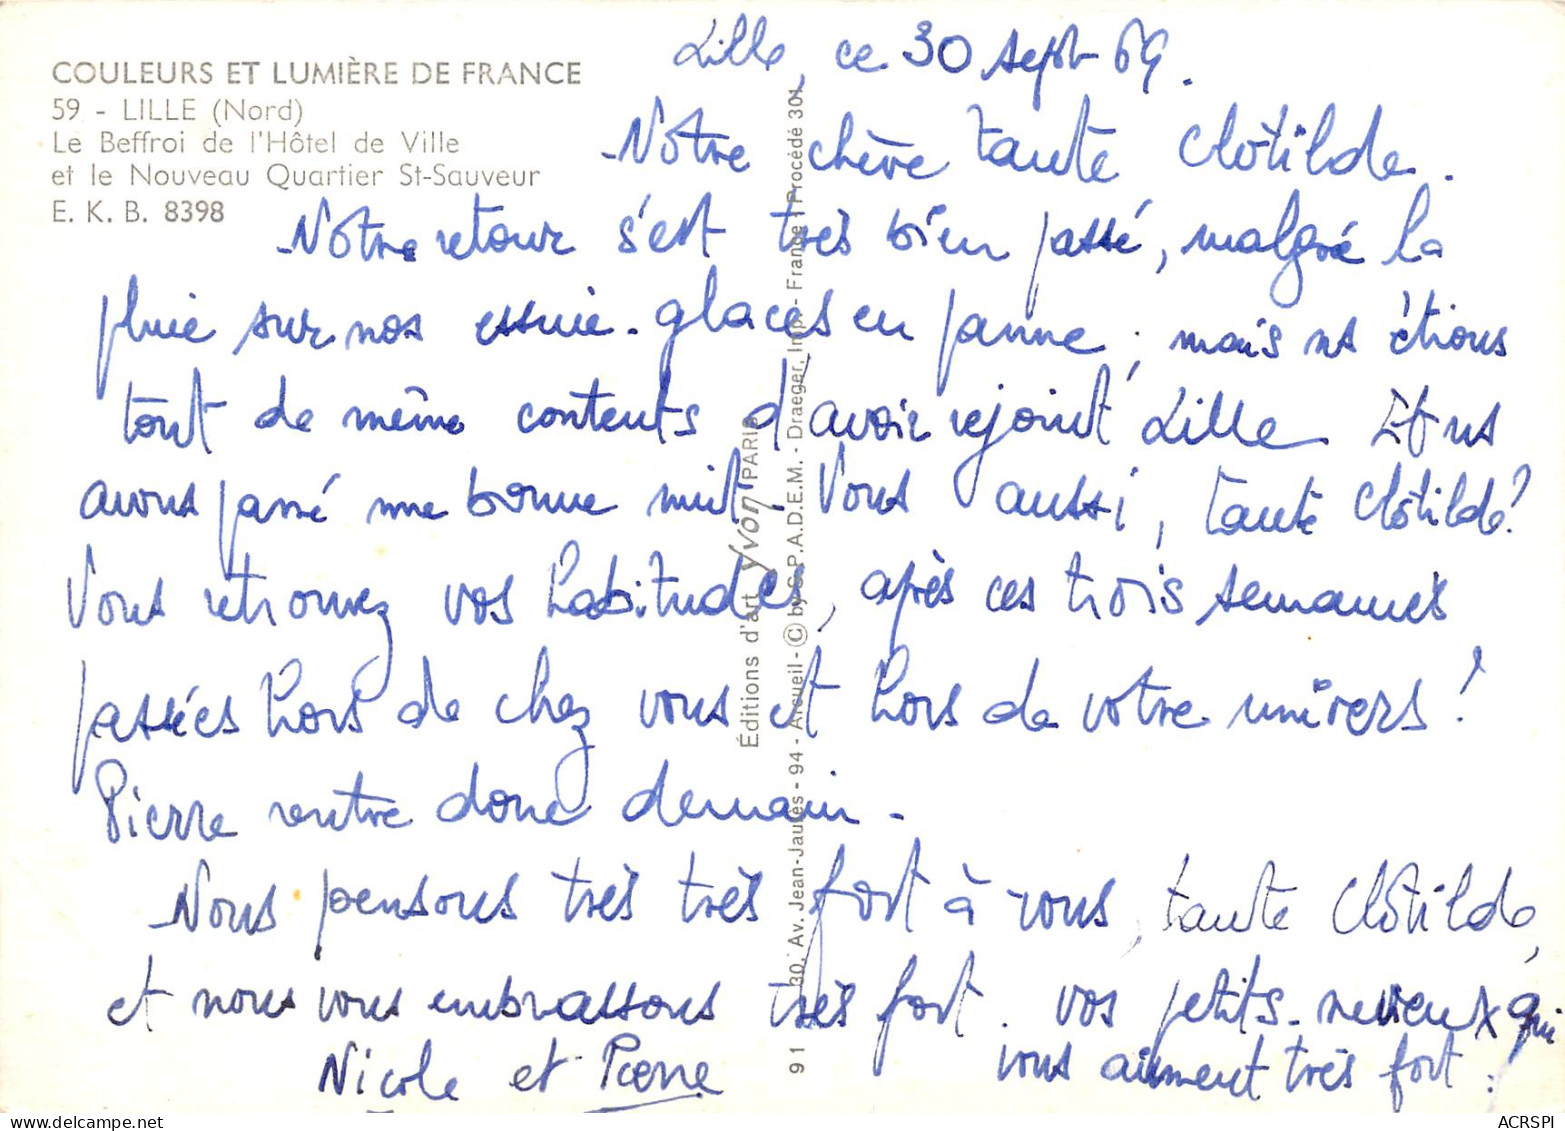 COULEURS ET LUMIÈRE DE FRANCE
59 - LILLE (Nord)
Le Beffroi de l'Hôtel de Ville
et le Nouveau Quartier St-Sauveur
E. K. B. 8398
Lille, ce 30 sept 69.
Notre chère tante Clotilde.
Notre retour s'est très bien passé, malgré la
pluie sur nos essuie-glaces en panne ; mais ns étions
tout de même contents d'avoir rejoint Lille. Et ns
avons passé une bonne nuit. Vous aussi, tante Clotilde?
Vous retrouvez vos habitudes, après ces trois semaines
passées hors de chez vous et hors de votre univers!
Pierre rentre donc demain.
Nous pensons très très fort à vous, tante Clotilde,
et nous vous embrassons très fort. vos petits-neveux qui
vous aiment très fort.
Nicole et Pierre
Éditions d'art Yvon PARIS
91 30, Av. Jean-Jaurès - 94 - Arcueil - © by S.P.A.D.E.M. - Draeger, Imp. - France | Procédé 301
ACRSPI